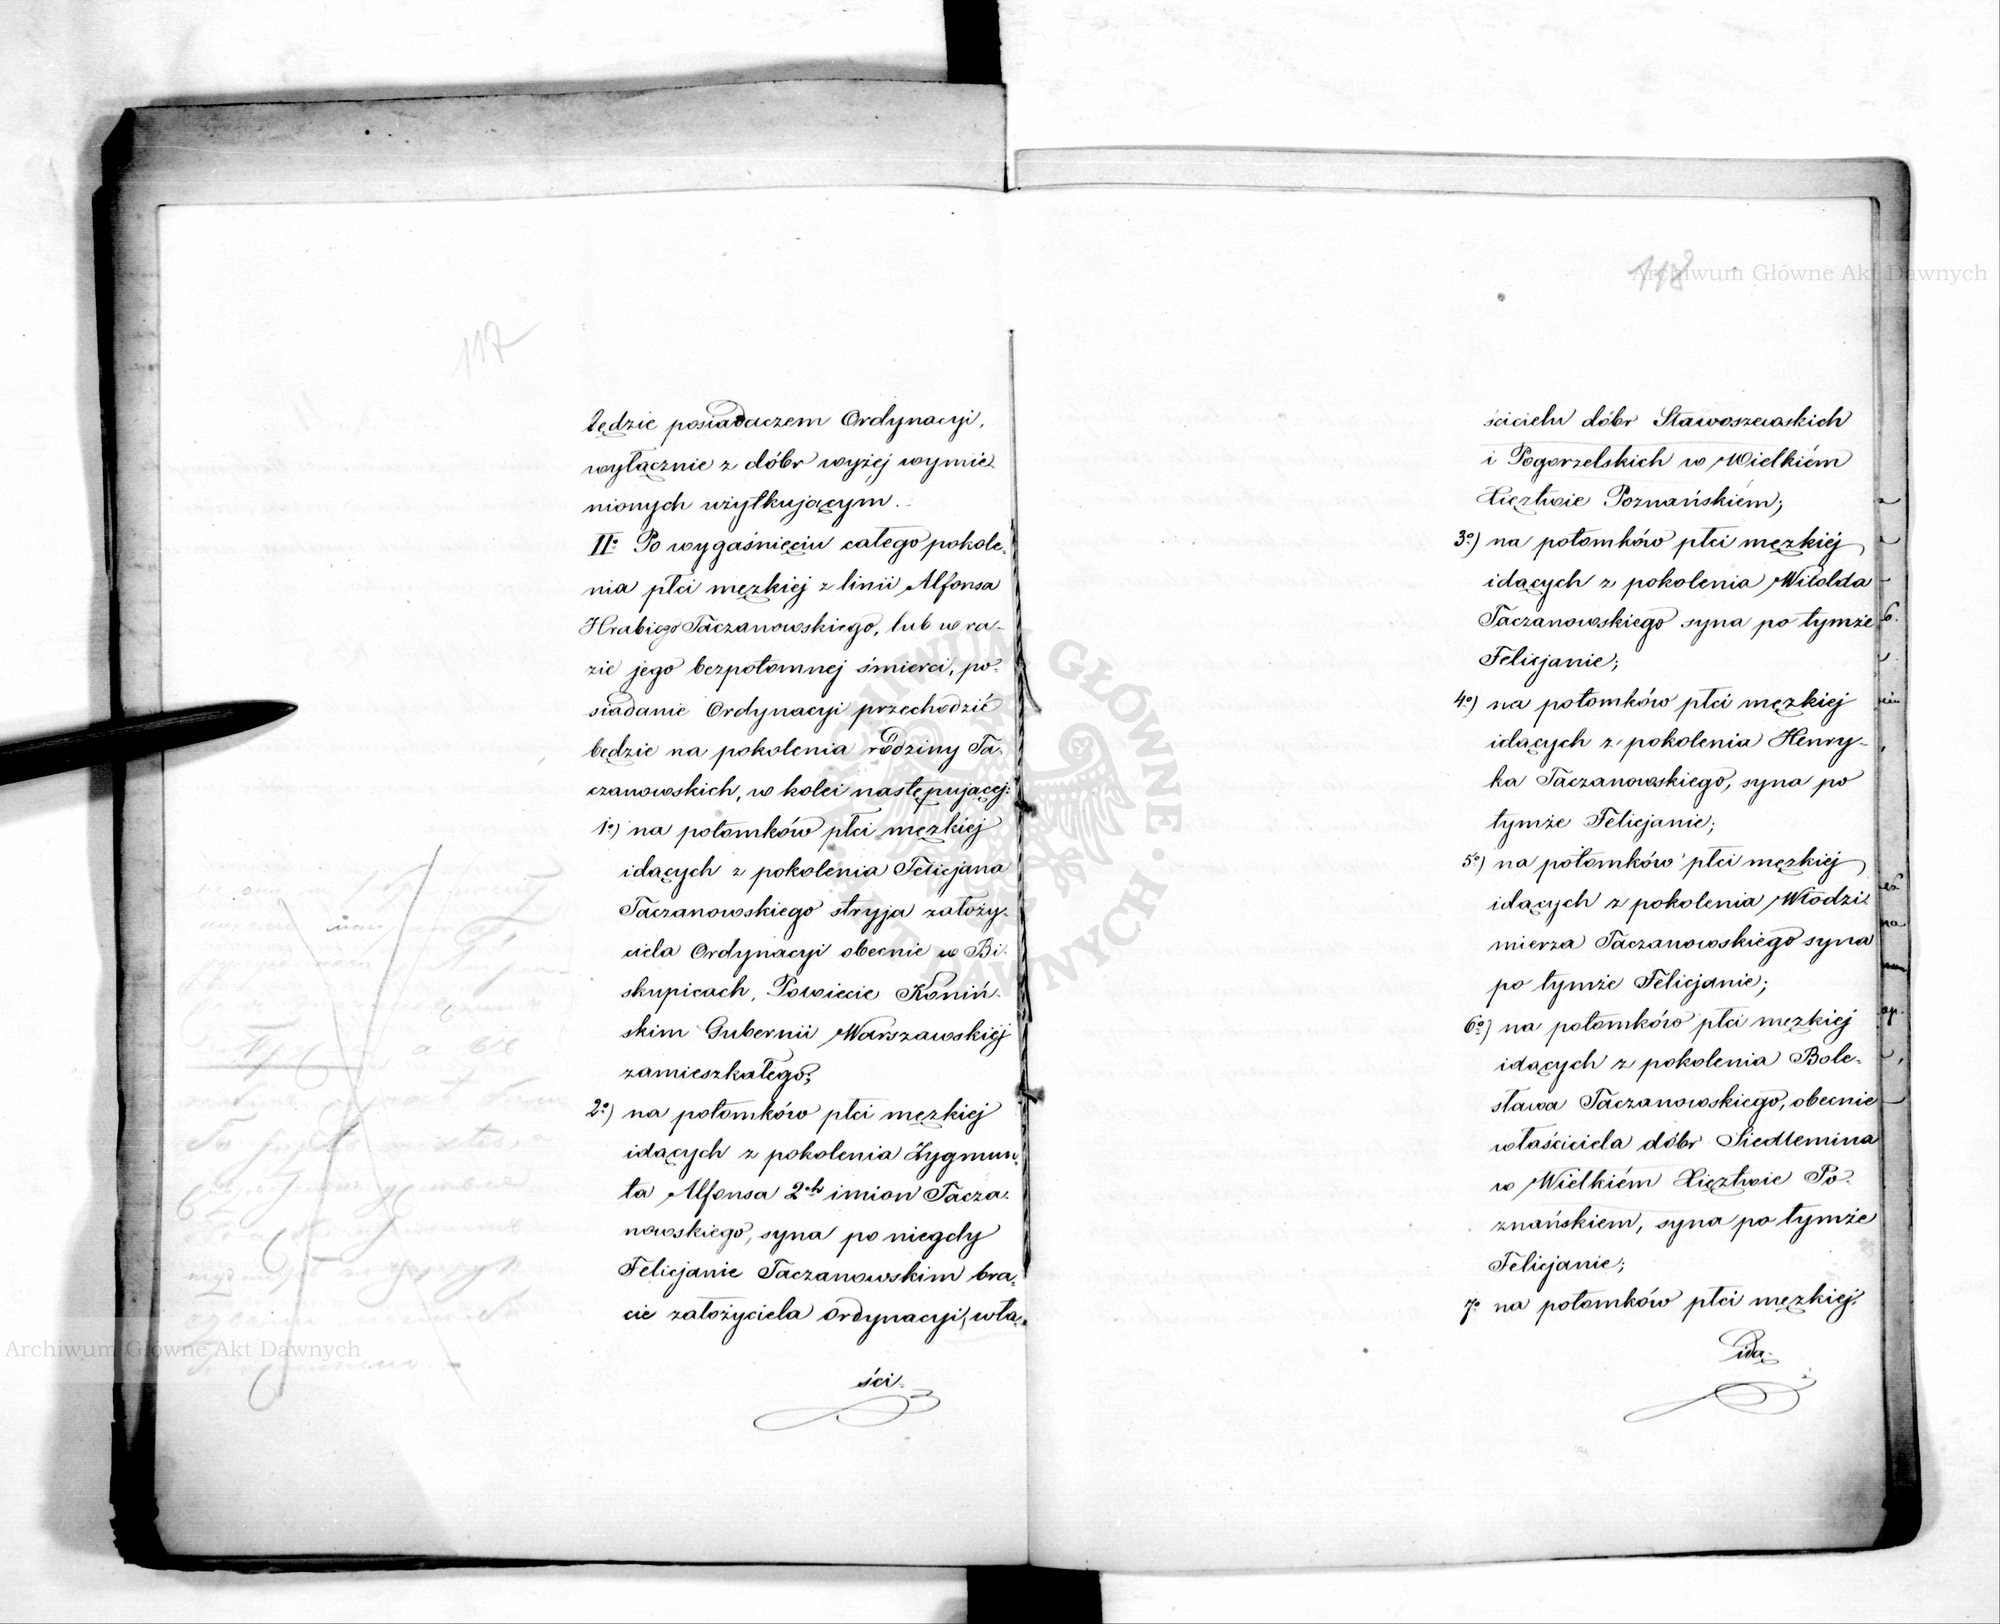 117
będzie posiadaczem Ordynacyi,
wyłącznie z dóbr wyżej wymie-
nionych użytkującym.-
II° Po wygaśnięciu całego pokole-
nia płci męzkiej z linii Alfonsa
Hrabiego Taczanowskiego, lub w ra-
zie jego bezpotomnej śmierci, po-
siadanie Ordynacyi przechodzić
będzie na pokolenia rodziny Ta-
czanowskich, w kolei następującej:
1°) na potomków płci męzkiej
idących z pokolenia Felicjana
Taczanowskiego stryja założy-
ciela Ordynacyi obecnie w Bi-
skupicach, Powiecie Koniń-
skim Gubernii Warszawskiej
zamieszkałego;
2°) na potomków płci męzkiej
idących z pokolenia Zygmun-
ta Alfonsa 2ch imion Tacza-
nowskiego, syna po niegdy
Felicjanie Taczanowskim bra-
cie założyciela Ordynacyi, wła-
ści-
118
ścicielu dóbr Sławoszewskich
i Pogorzelskich w Wielkiém
Xięztwie Poznańskiém;
3°) na potomków płci męzkiej
idących z pokolenia Witolda
Taczanowskiego syna po tymże
Felicjanie;
4°) na potomków płci męzkiej
idących z pokolenia Henry-
ka Taczanowskiego, syna po
tymże Felicjanie;
5°) na potomków płci męzkiej
idących z pokolenia Włodzi-
mierza Taczanowskiego syna
po tymże Felicjanie;
6°) na potomków płci męzkiej
idących z pokolenia Bole-
sława Taczanowskiego, obecnie
właściciela dóbr Siedlemina
w Wielkiém Xięztwie Po-
znańskiem, syna po tymże
Felicjanie;
7° na potomków płci męzkiej
ida-
Archiwum Główne Akt Dawnych
Archiwum Główne Akt Dawnych
ARCHIWUM GŁÓWNE AKT DAWNYCH